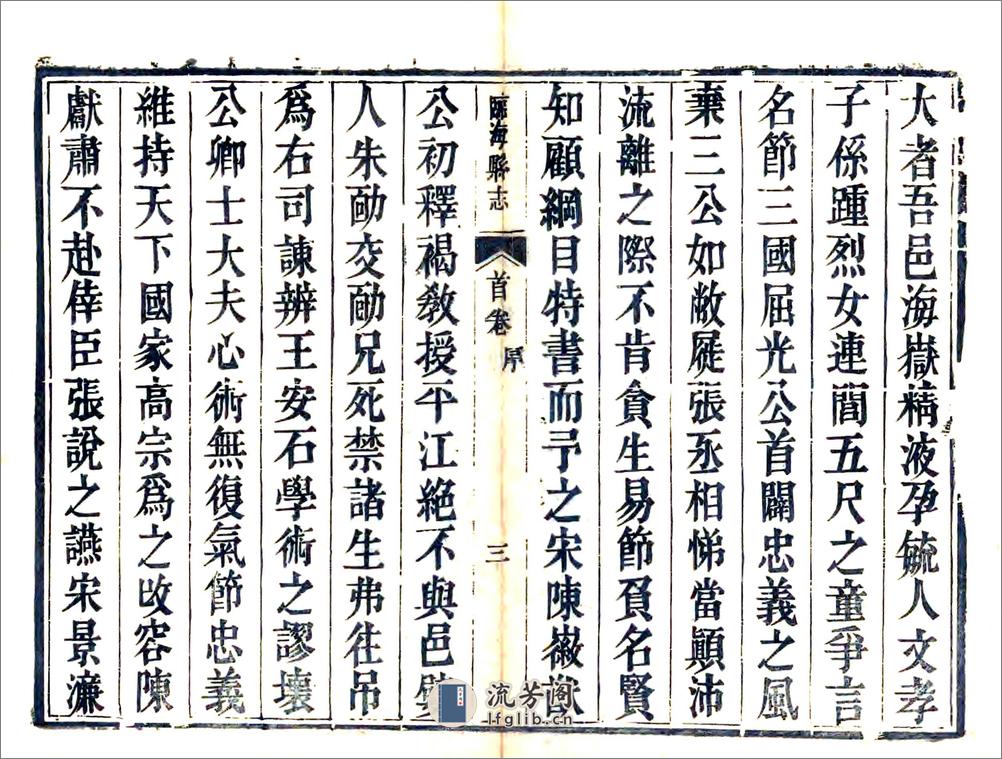 大者吾邑海嶽精液孕毓人文孝
子係踵烈女連閭五尺之童爭言
名節三國屈光公首闢忠義之風
棄三公如敝屣張丞相悌當顛沛
流離之際不肯貪生易節負名賢
知顧綱目特書而予之宋陳獻
臨海縣志
首卷
序
三
公初釋褐敎授平江絕不與邑
人朱勔交勔兄死禁諸生弗往吊
爲右司諫辨王安石學術之謬壞
公卿士大夫心術無復氣節忠義
維持天下國家高宗爲之改容陳
獻肅不赴倖臣張說之讌宋景濂
流芳阁
lfglib.cn